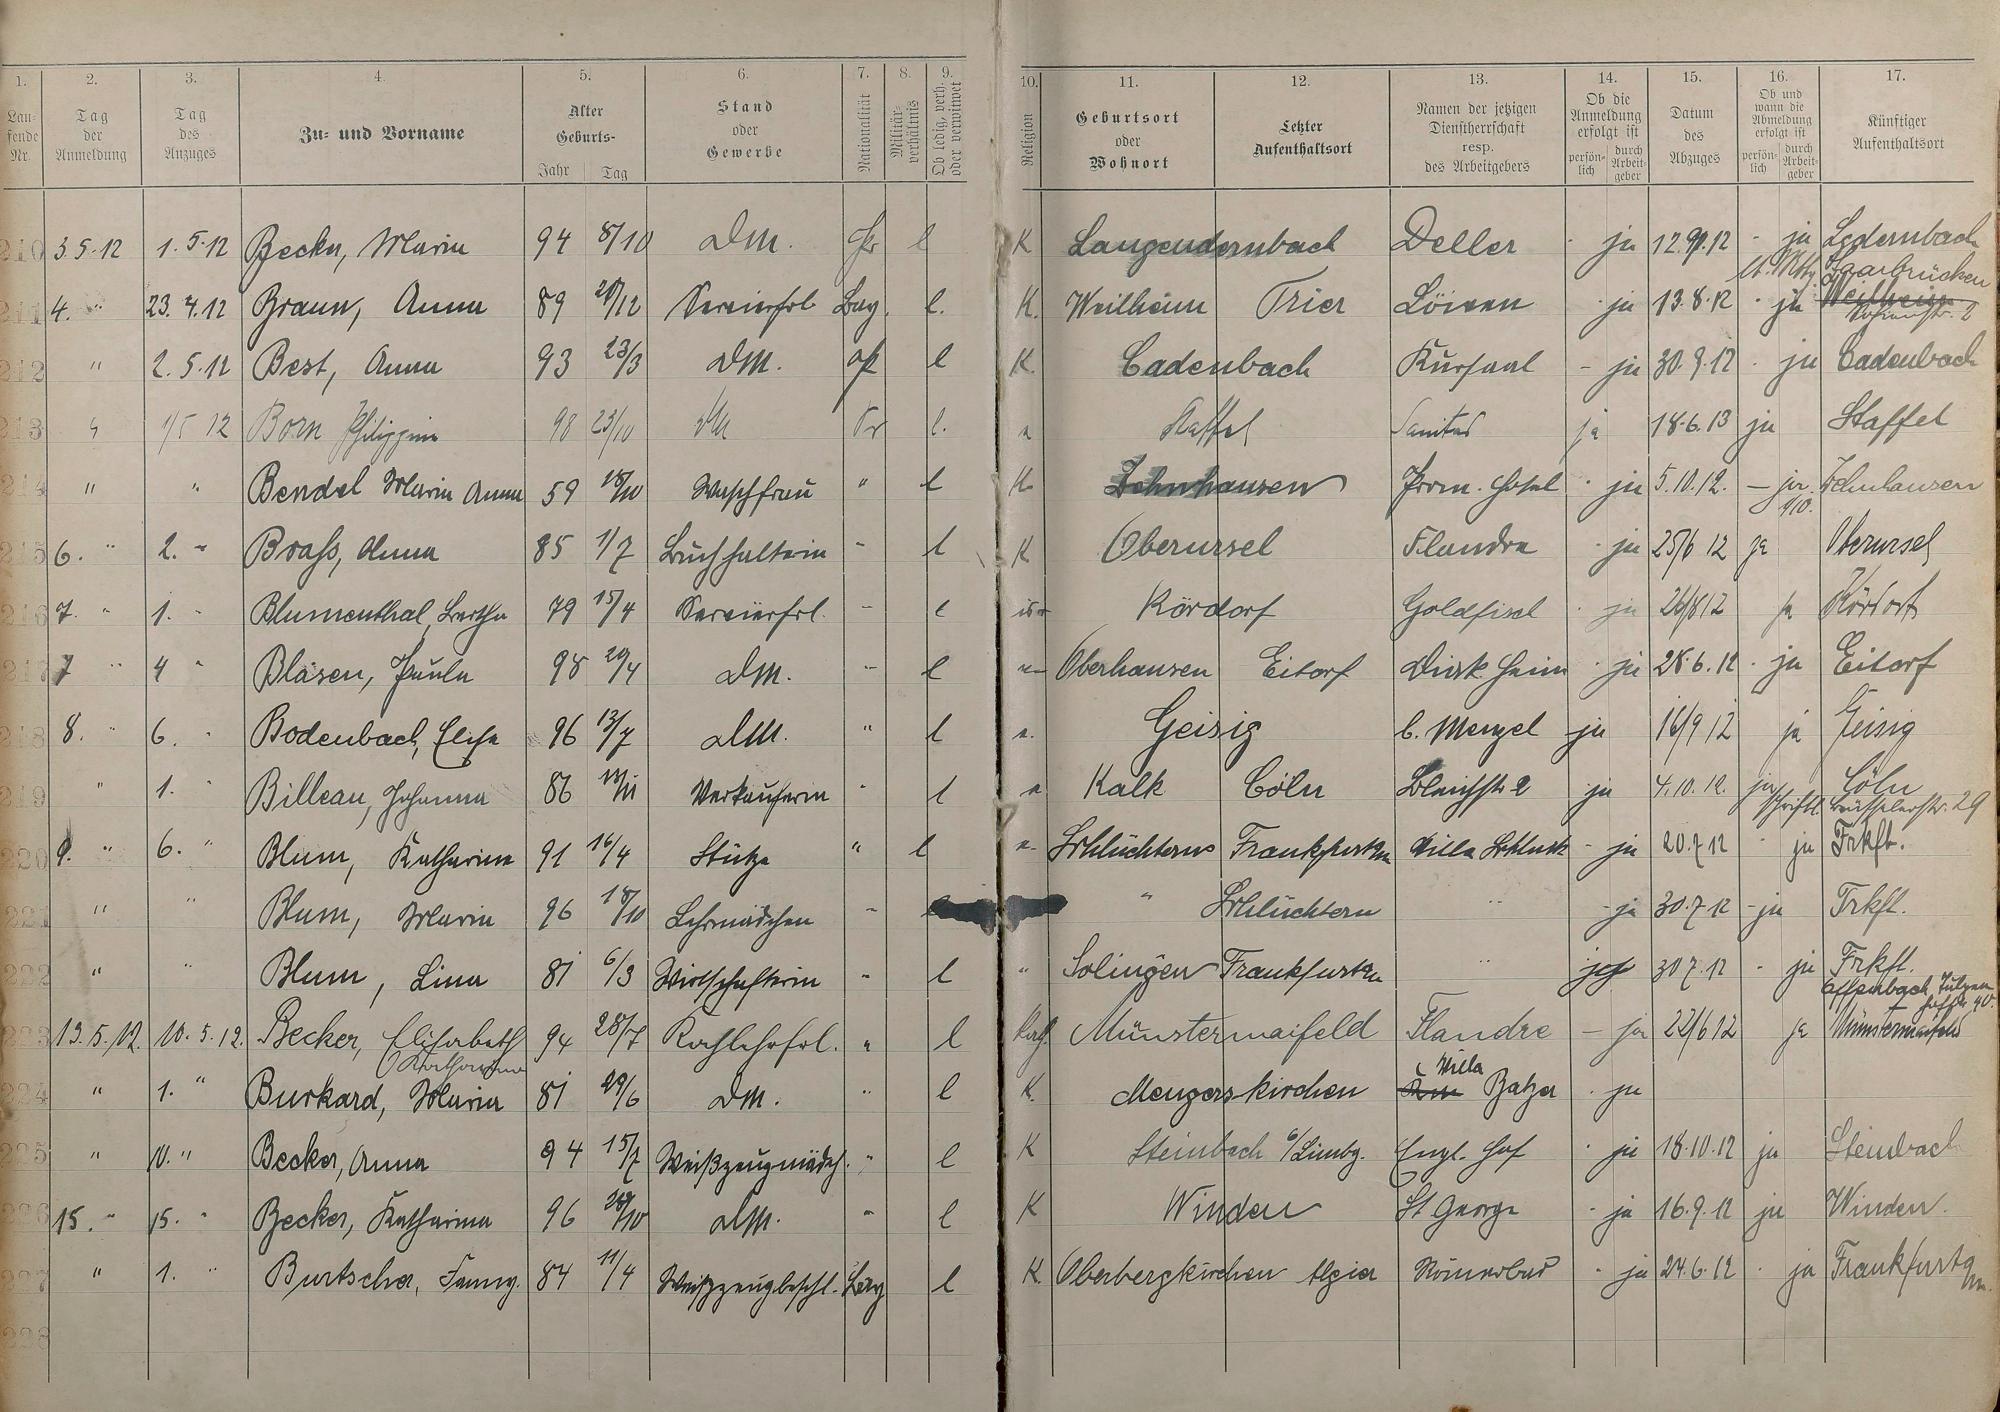 1. 2. 3. 4. 5. 6. 7. 8. 9. 10. 11. 12. 13. 14. 15. 16. 17.
Laufende Nr. Tag der Anmeldung Tag des Anzuges Zu- und Vorname Alter Geburts- Jahr Tag Stand oder Gewerbe Nationalität Militärverhältnis Ob ledig, verh. oder verwitwet Religion Geburtsort oder Wohnort Letzter Aufenthaltsort Namen der jetzigen Dienstherrschaft resp. des Arbeitgebers Ob die Anmeldung erfolgt ist persönlich durch Arbeitgeber Datum des Abzuges Ob und wann die Abmeldung erfolgt ist persönlich durch Arbeitgeber Künftiger Aufenthaltsort
210 3.5.12 1.5.12 Becker, Maria 94 8/10 DM. Pr l K Langendernbach Deller - ja - ja Ldernbach
211 4. " 23.4.12 Braun, Anna 89 Servierfrl Bay. l. K. Weilheim Trier Löwen - ja 13.8.12 - ja Saarbrücken Weilheim
212 " 2.5.12 Best, Anna 93 23/3 DM. l K. Cadenbach Kursaal - ja 30.9.12 - ja Cadenbach
213 " 1/5 12 Born Philippine 98 23/10 DM Pr l. Staffel Sanitas ja 18.6.13 ja Staffel
214 " " Bendel Maria Anna 59 18/10 Waschfrau " l K Zehnhausen Prom. Hotel - ja 5.10.12. - ja Zehnhausen
215 6. " 2. " Braß, Anna 85 1/7 Buchhalterin - l K Oberursel Flandre - ja 25/6 12 ja Oberursel
216 7. " 1. " Blumenthal, Bertha 79 15/4 Servierfrl. - l isr Kördorf Goldfisch - ja 26/8 12 ja Kördorf
217 7 " 4 " Bläsen, Paula 98 20/4 DM. - l Oberhausen Eitorf Diak. Heim - ja 28.6.12 - ja Eitorf
218 8. " 6. " Bodenbach, Elise 96 13/7 DM. " l Geisig b. Menzel ja 16/9 12 ja Geisig
219 " 1. " Billeau, Johanna 86 Verkäuferin " l Kalk Cöln Bleichstr 2 ja 4.10.12. ja schriftl. Cöln Brüsselerstr. 29
220 9. " 6. " Blum, Katharina 91 16/4 Stütze " l Schlüchtern Frankfurt a/m Villa - ja 20.7.12 - ja Frkft.
221 " " Blum, Maria 96 18/10 Lehrmädchen - l " Schlüchtern " - ja 30.7.12 - ja Frkft.
222 " " Blum, Lina 81 6/3 Wirtschafterin - l " Solingen Frankfurt a/m " ja 30.7.12 - ja Frkft. Offenbach,
223 13.5.12. 10.5.12. Becker, Elisabeth Katharina 94 28/7 Kochlehrfrl. " l kath. Münstermaifeld Flandre - ja 22/6 12 ja Münstermaifeld
224 " 1. " Burkard, Maria 81 29/6 DM. " l K. Mengerskirchen Villa Balzer - ja
225 " 10. " Becker, Anna 94 15/7 Weißzeugmädch. " l K Steinbach b/Limbg. Engl. Hof - ja 18.10.12 ja Steinbach
226 15. " 15. " Becker, Katharina 96 28/10 DM. " l K Winden St George - ja 16.9.12 ja Winden.
227 " 1. " Burtscher, Fanny. 84 11/4 Weißzeugbeschl. Bay l K. Oberbergkirchen Algier Römerbad - ja 24.6.12 - ja Frankfurt a m.
228